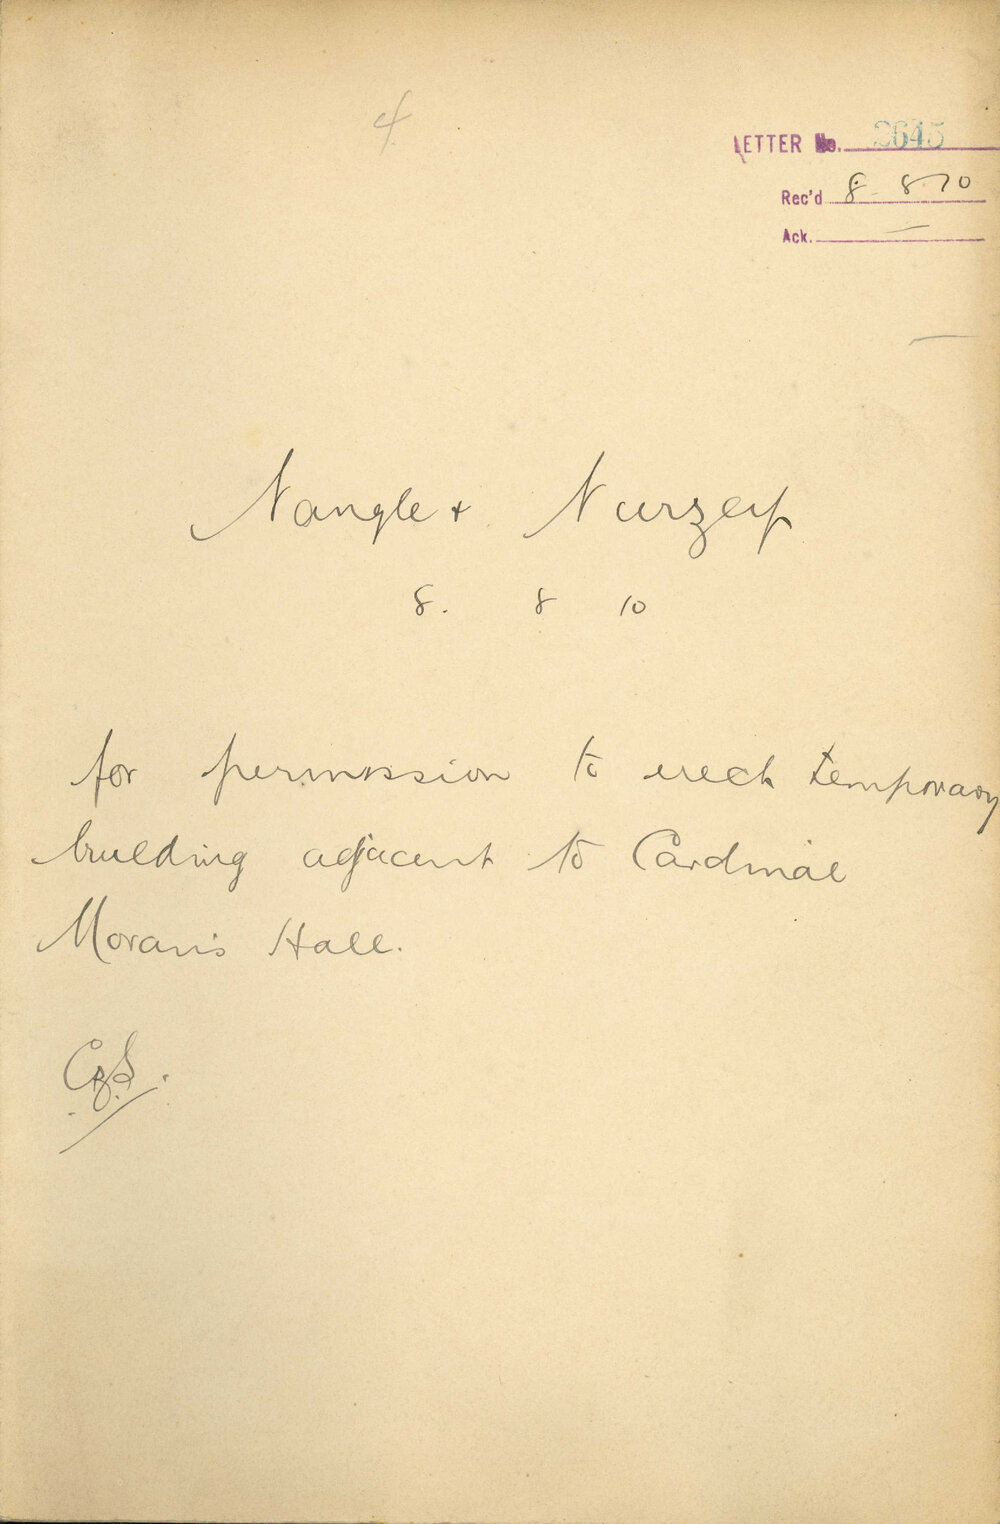 4
LETTER No. 2645
Rec'd 8. 8. 10
Ack. —
Nangle + Nurzey
8. 8 10
for permission to erect temporary
building adjacent to Cardinal
Moran's Hall.